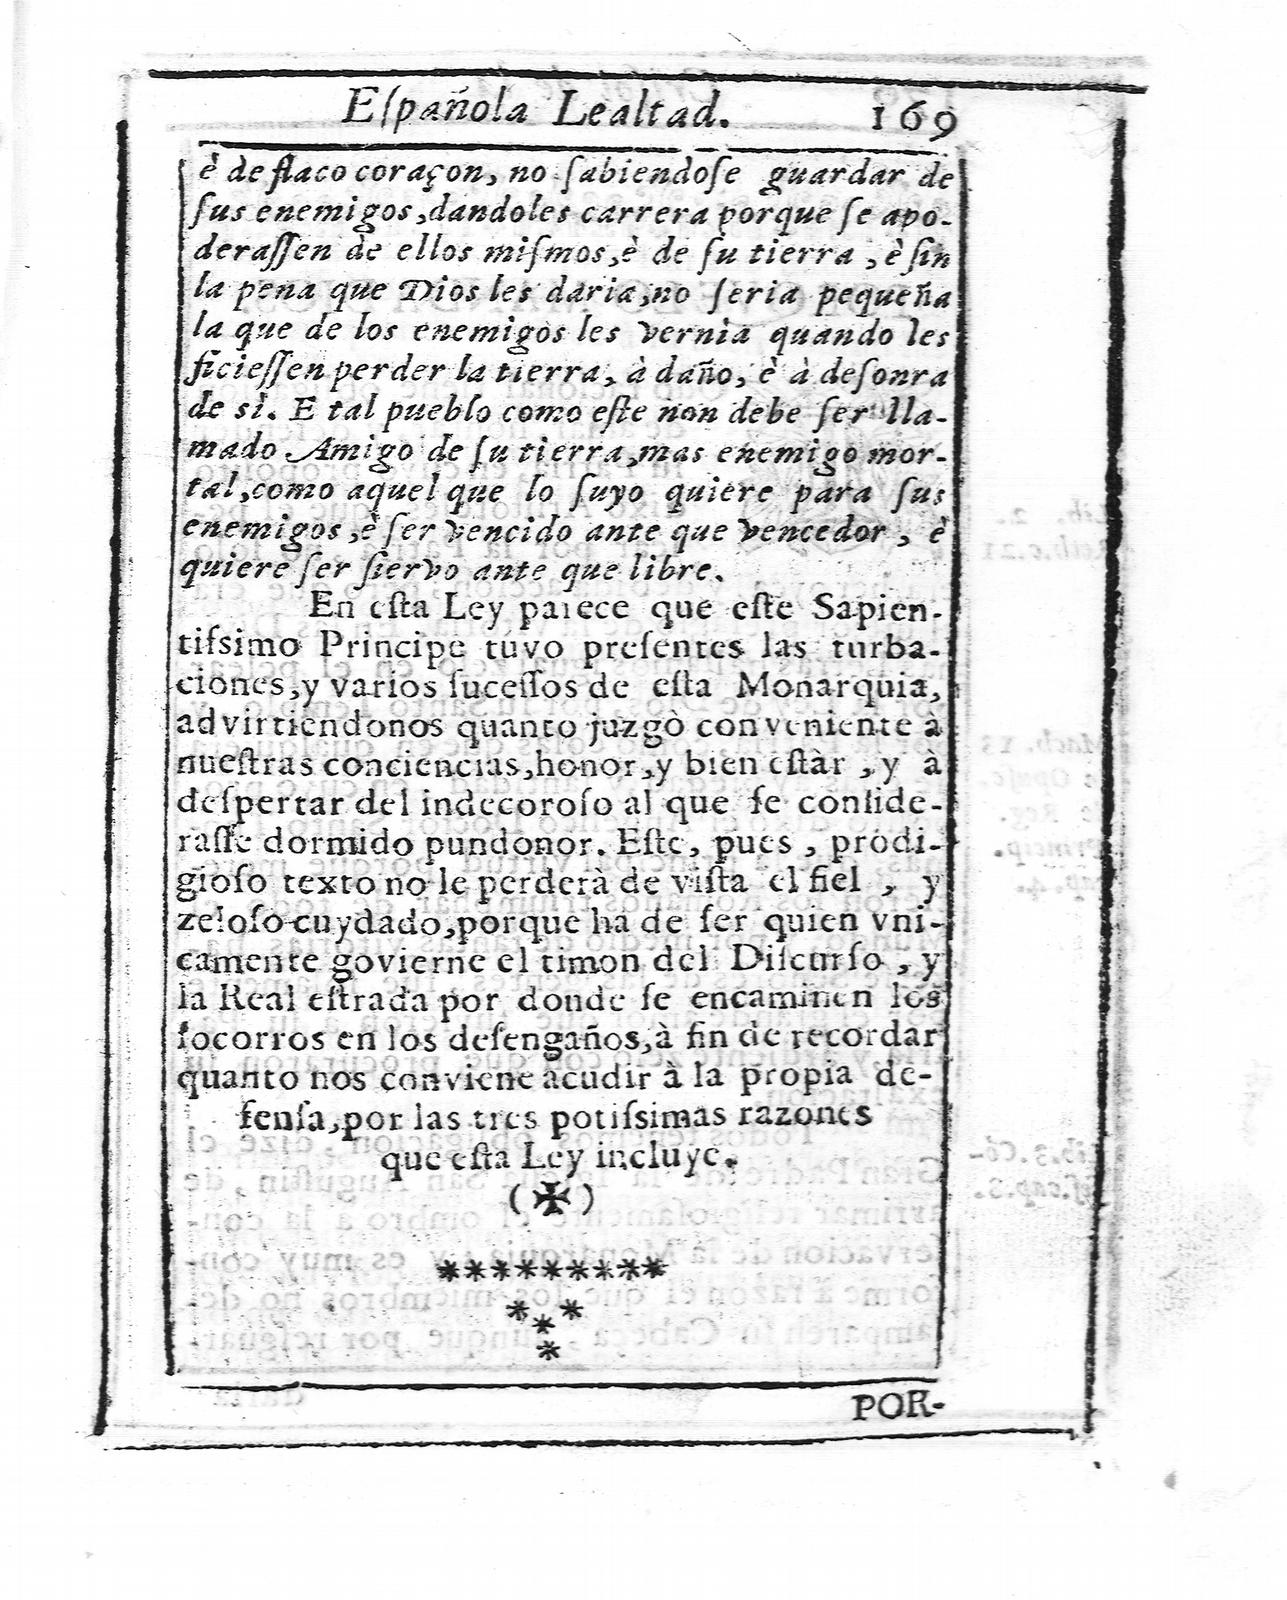 Eſpañola Lealtad. 169
è de flaco coraçon, no ſabiendoſe guardar de
ſus enemigos, dandoles carrera porque ſe apo-
deraſſen de ellos miſmos, è de ſu tierra, è ſin
la pena que Dios les daria, no ſeria pequeña
la que de los enemigos les vernia quando les
ficieſſen perder la tierra, à daño, è à deſonra
de sì. E tal pueblo como eſte non debe ſer lla-
mado Amigo de ſu tierra, mas enemigo mor-
tal, como aquel que lo ſuyo quiere para ſus
enemigos, è ſer vencido ante que vencedor, è
quiere ſer ſiervo ante que libre.
En eſta Ley parece que eſte Sapien-
tiſsimo Principe tuvo preſentes las turba-
ciones, y varios ſuceſſos de eſta Monarquia,
advirtiendonos quanto juzgò conveniente à
nueſtras conciencias, honor, y bien eſtàr, y à
deſpertar del indecoroſo al que ſe conſide-
raſſe dormido pundonor. Eſte, pues, prodi-
gioſo texto no le perderà de viſta el fiel, y
zeloſo cuydado, porque ha de ſer quien vni-
camente govierne el timon del Diſcurſo, y
la Real eſtrada por donde ſe encaminen los
ſocorros en los deſengaños, à fin de recordar
quanto nos conviene acudir à la propia de-
fenſa, por las tres potiſsimas razones
que eſta Ley incluye.
(✠)
*********
* * *
*
POR-